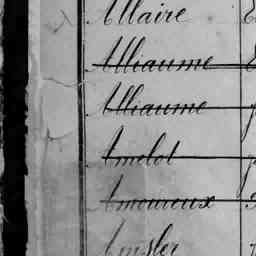 Allaire
Alliaume
Alliaume
Amelot
Amoureux